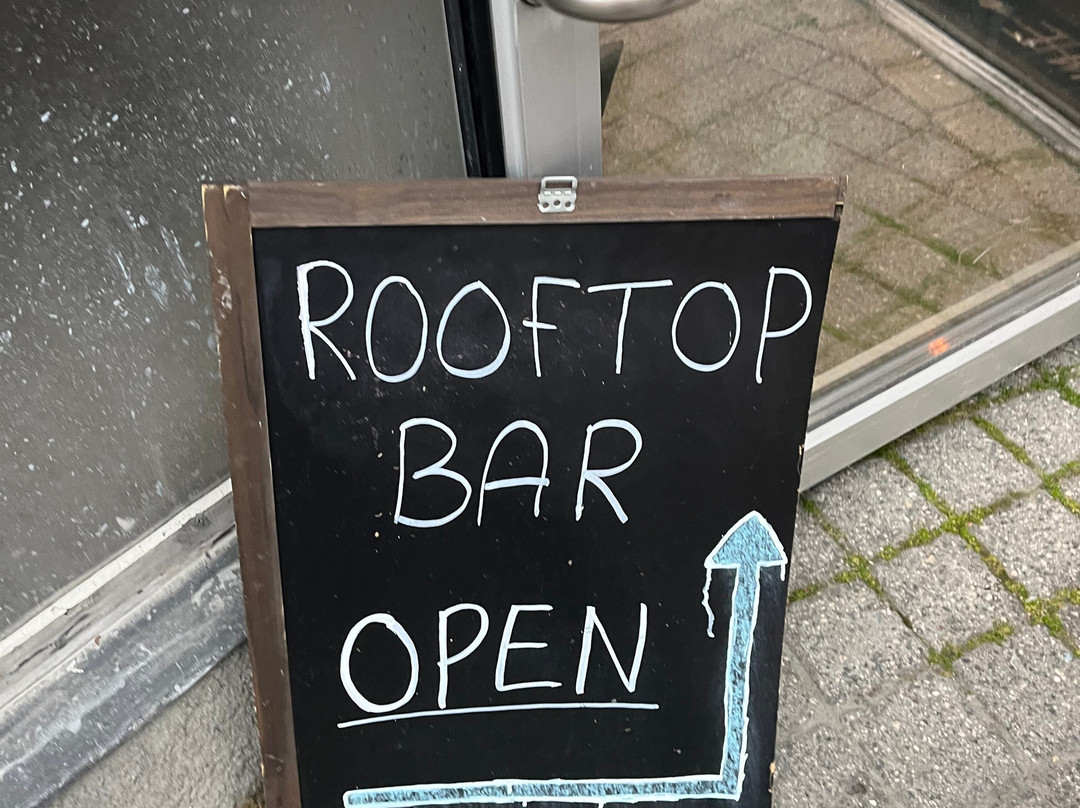 ROOFTOP
BAR
OPEN